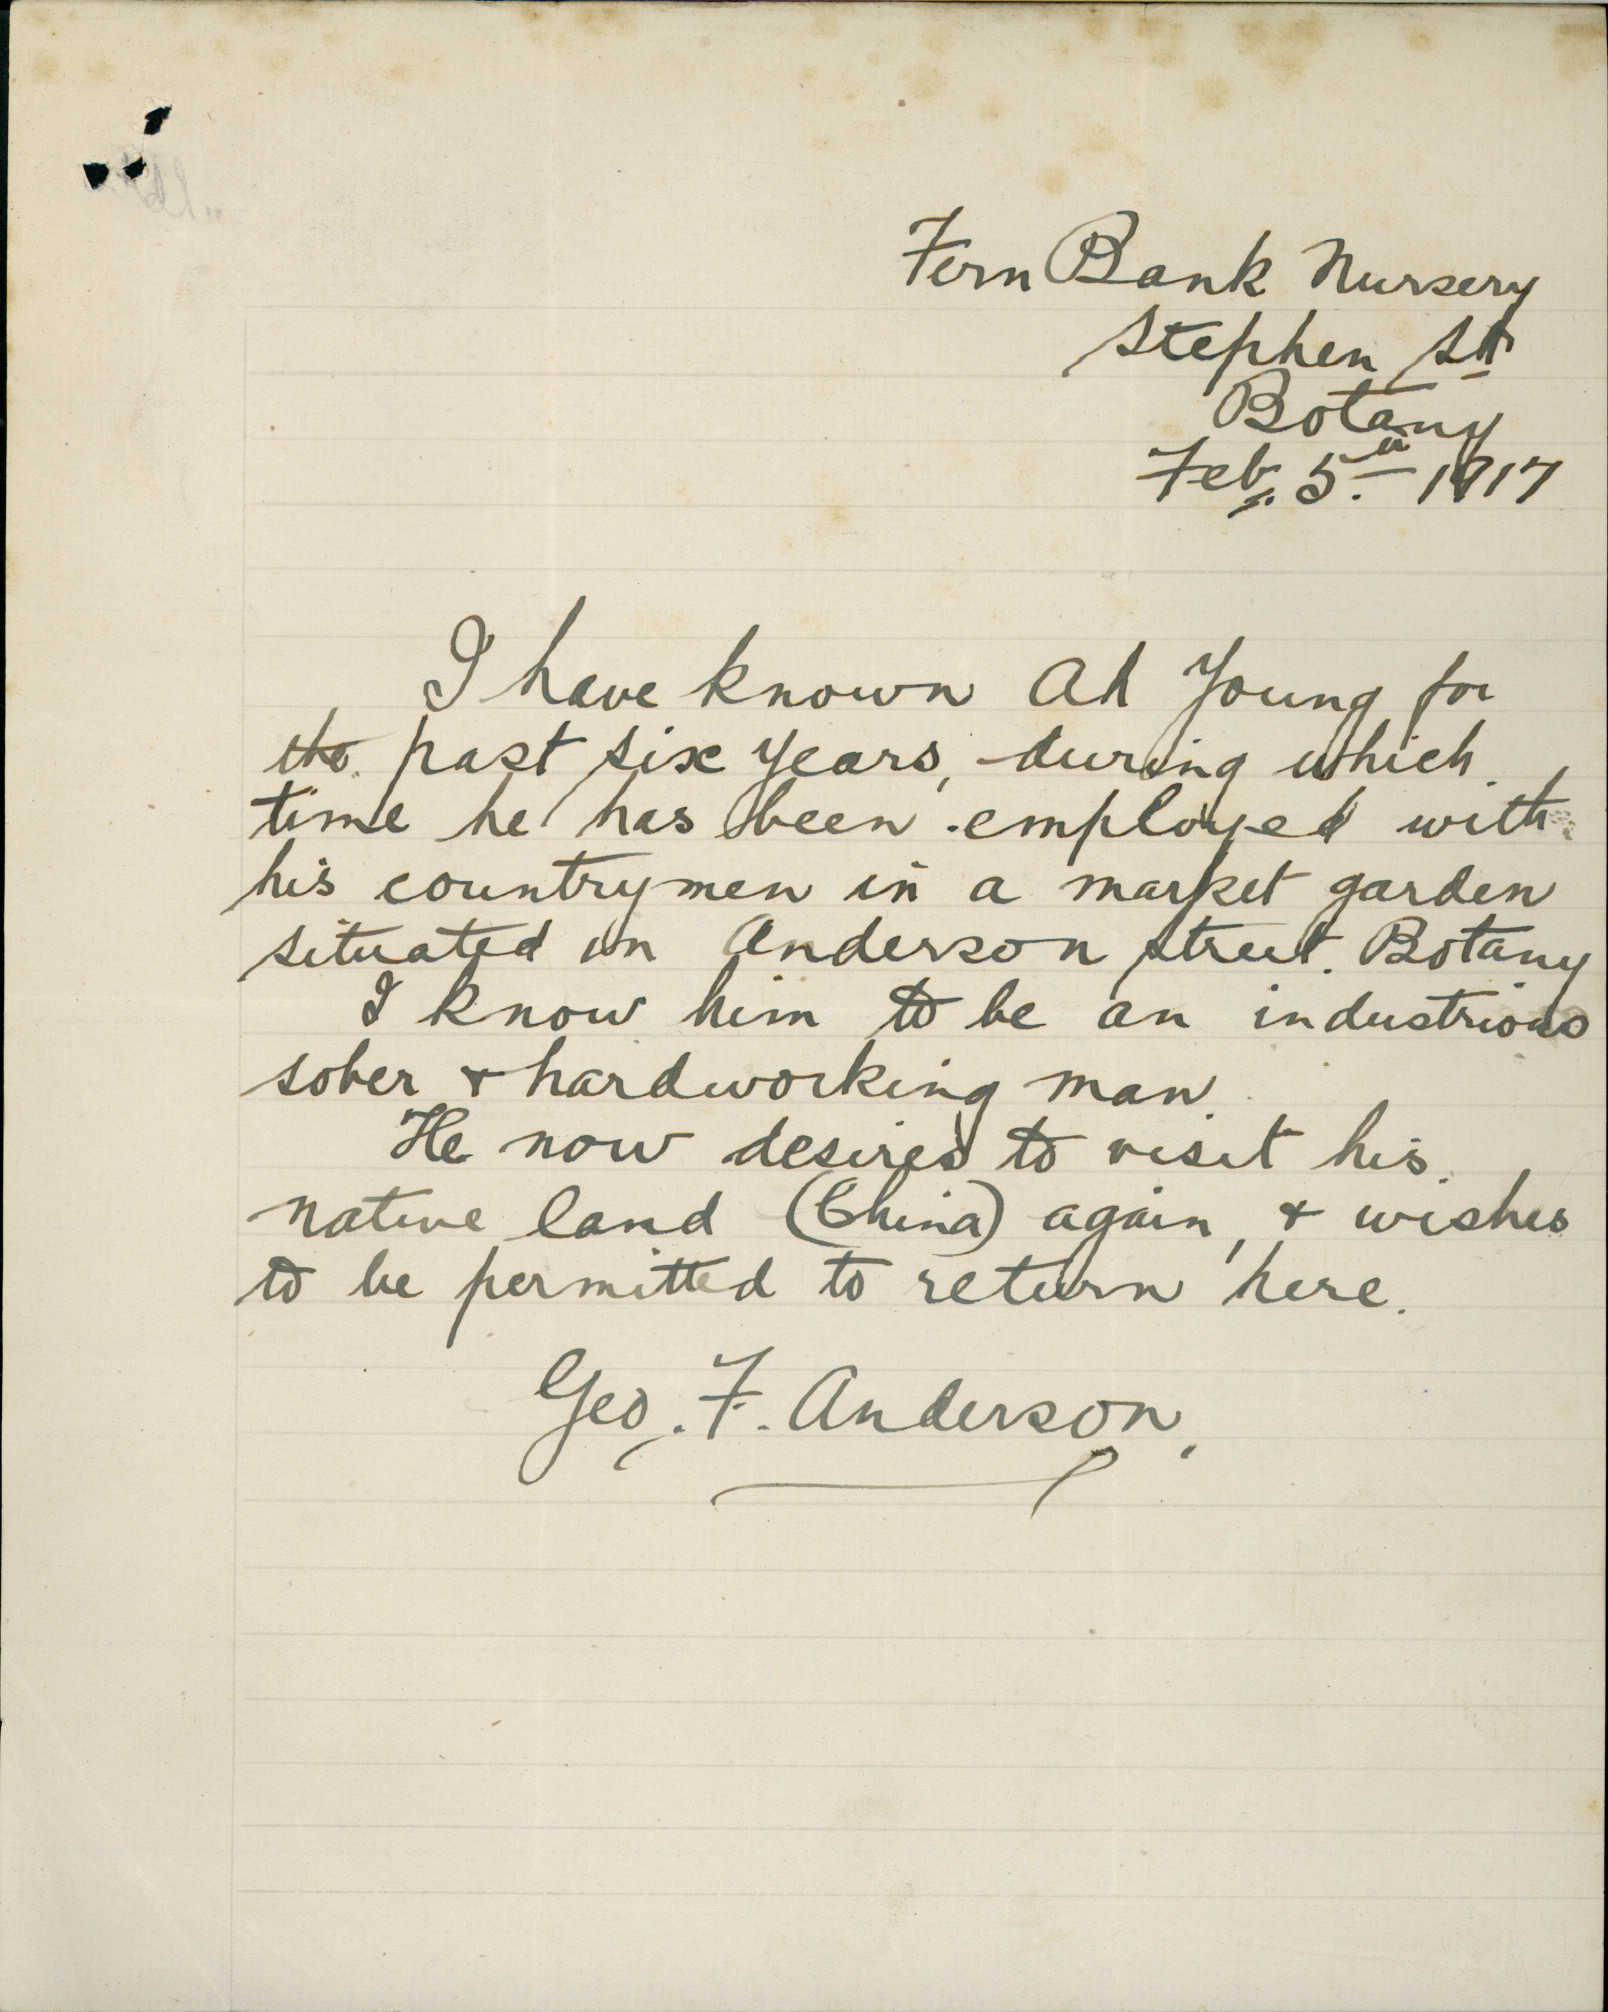 Fern Bank Nursery
Stephen St
Botany
Feb. 5th 1917
I have known Ah Young for
the past six years, during which
time he has been employed with
his countrymen in a market garden
situated in Anderson street. Botany
I know him to be an industrious
sober & hardworking man.
He now desires to visit his
native land (China) again, & wishes
to be permitted to return here.
Geo. F. Anderson.